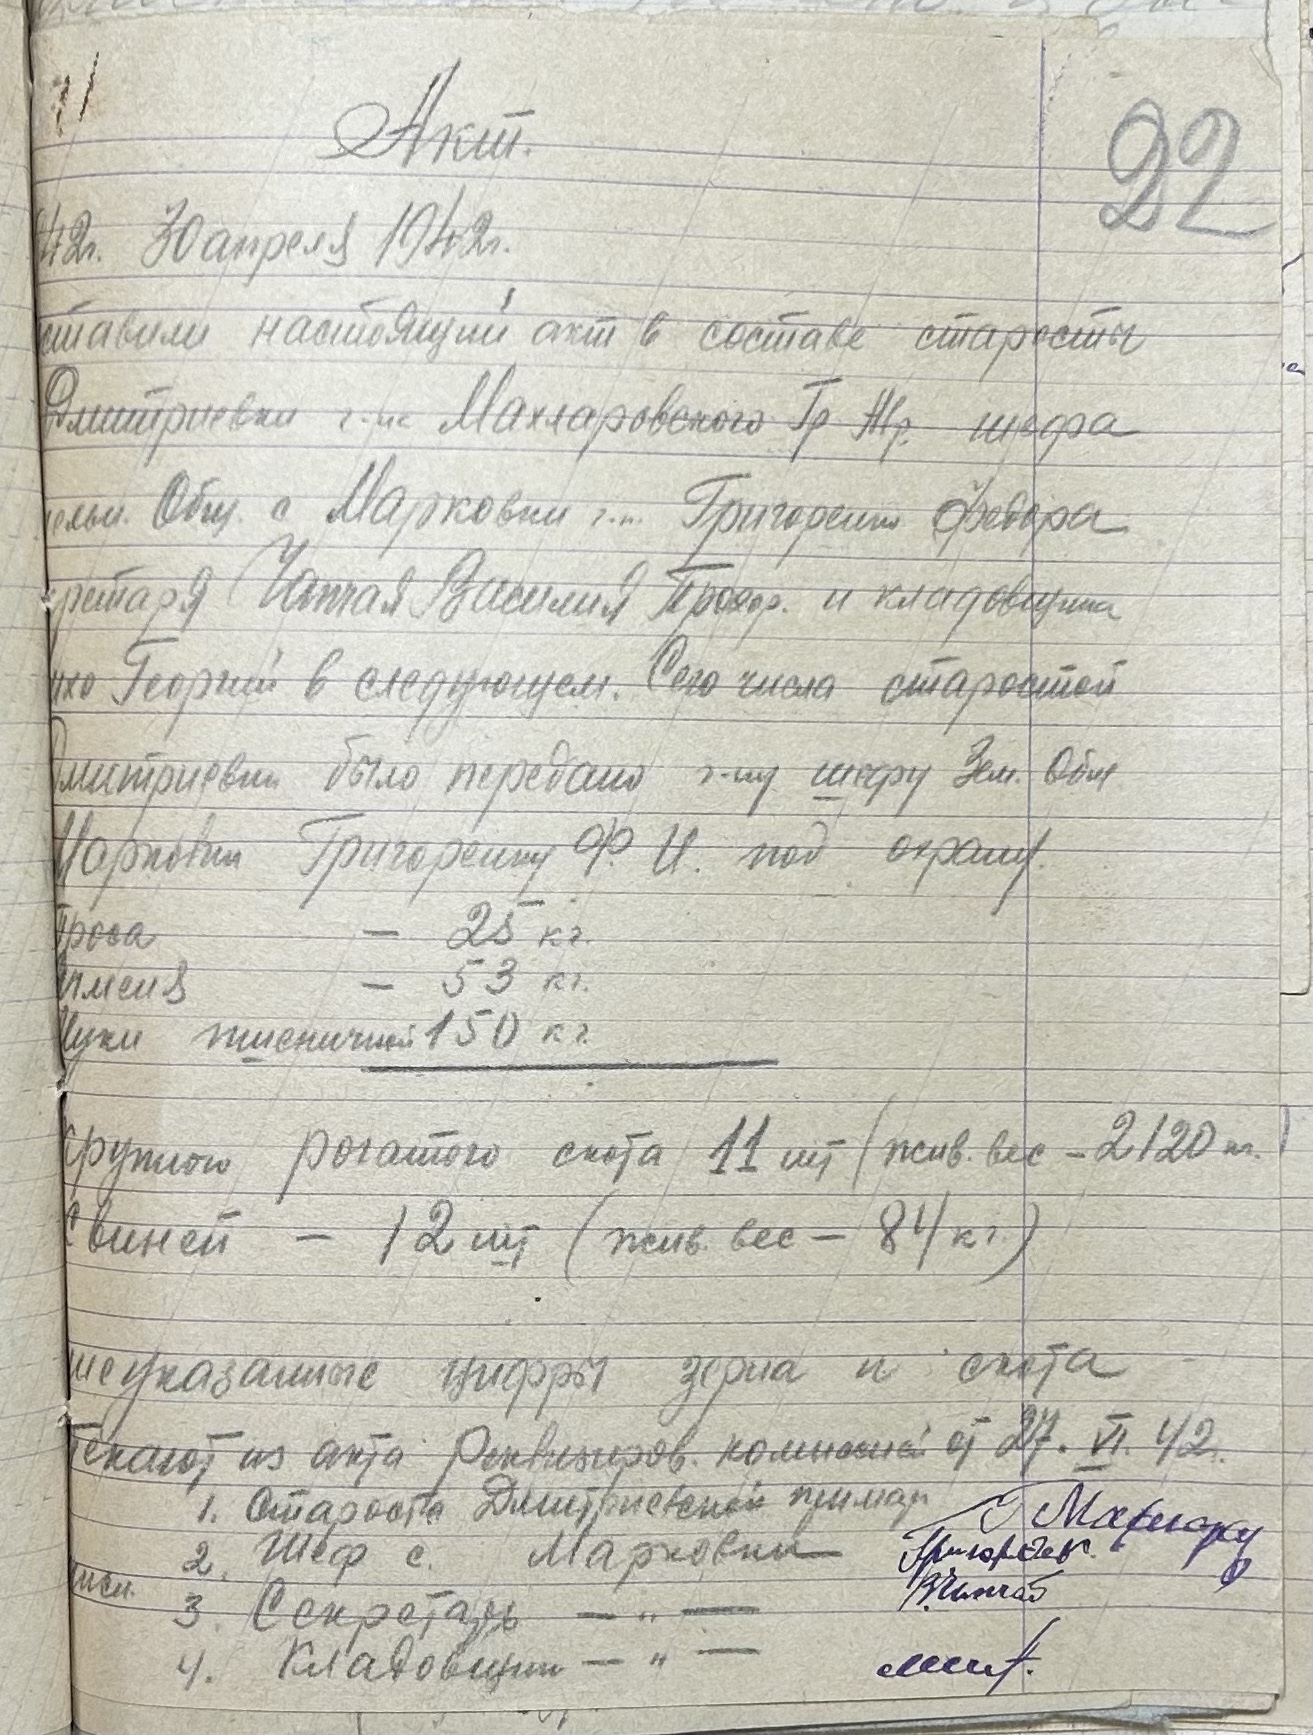 22
Акт.
42г. 30 апреля 1942г.
ставили настоящий акт в составе старосты
Дмитриевки г-на Махларовского Гр шефра
Общ. с Марковки г.н. Григоренко Федора
ретаря Чапчая Василия Прохор. и кладовщика
Георгий в следующем. Сего числа старостой
Дмитриевки было передано г-ну шефу Зем. Общ
Марковки Григоренку Ф. И. под охрану.
Проса — 25 кг.
чменя — 53 кг.
Муки пшеничной 150 кг.
крупного рогатого скота 11 шт (жив. вес – 2120 кг.)
Свиней — 12 шт (жив. вес – 84 кг.)
шеуказанные цифры зерна и скота
текают из акта Реквизиров. комиссией от 27. VI. 42г.
1. Староста Дмитриевской примар
2. Шеф с. Марковки
3. Секретарь — „ —
4. Кладовщик — „ —